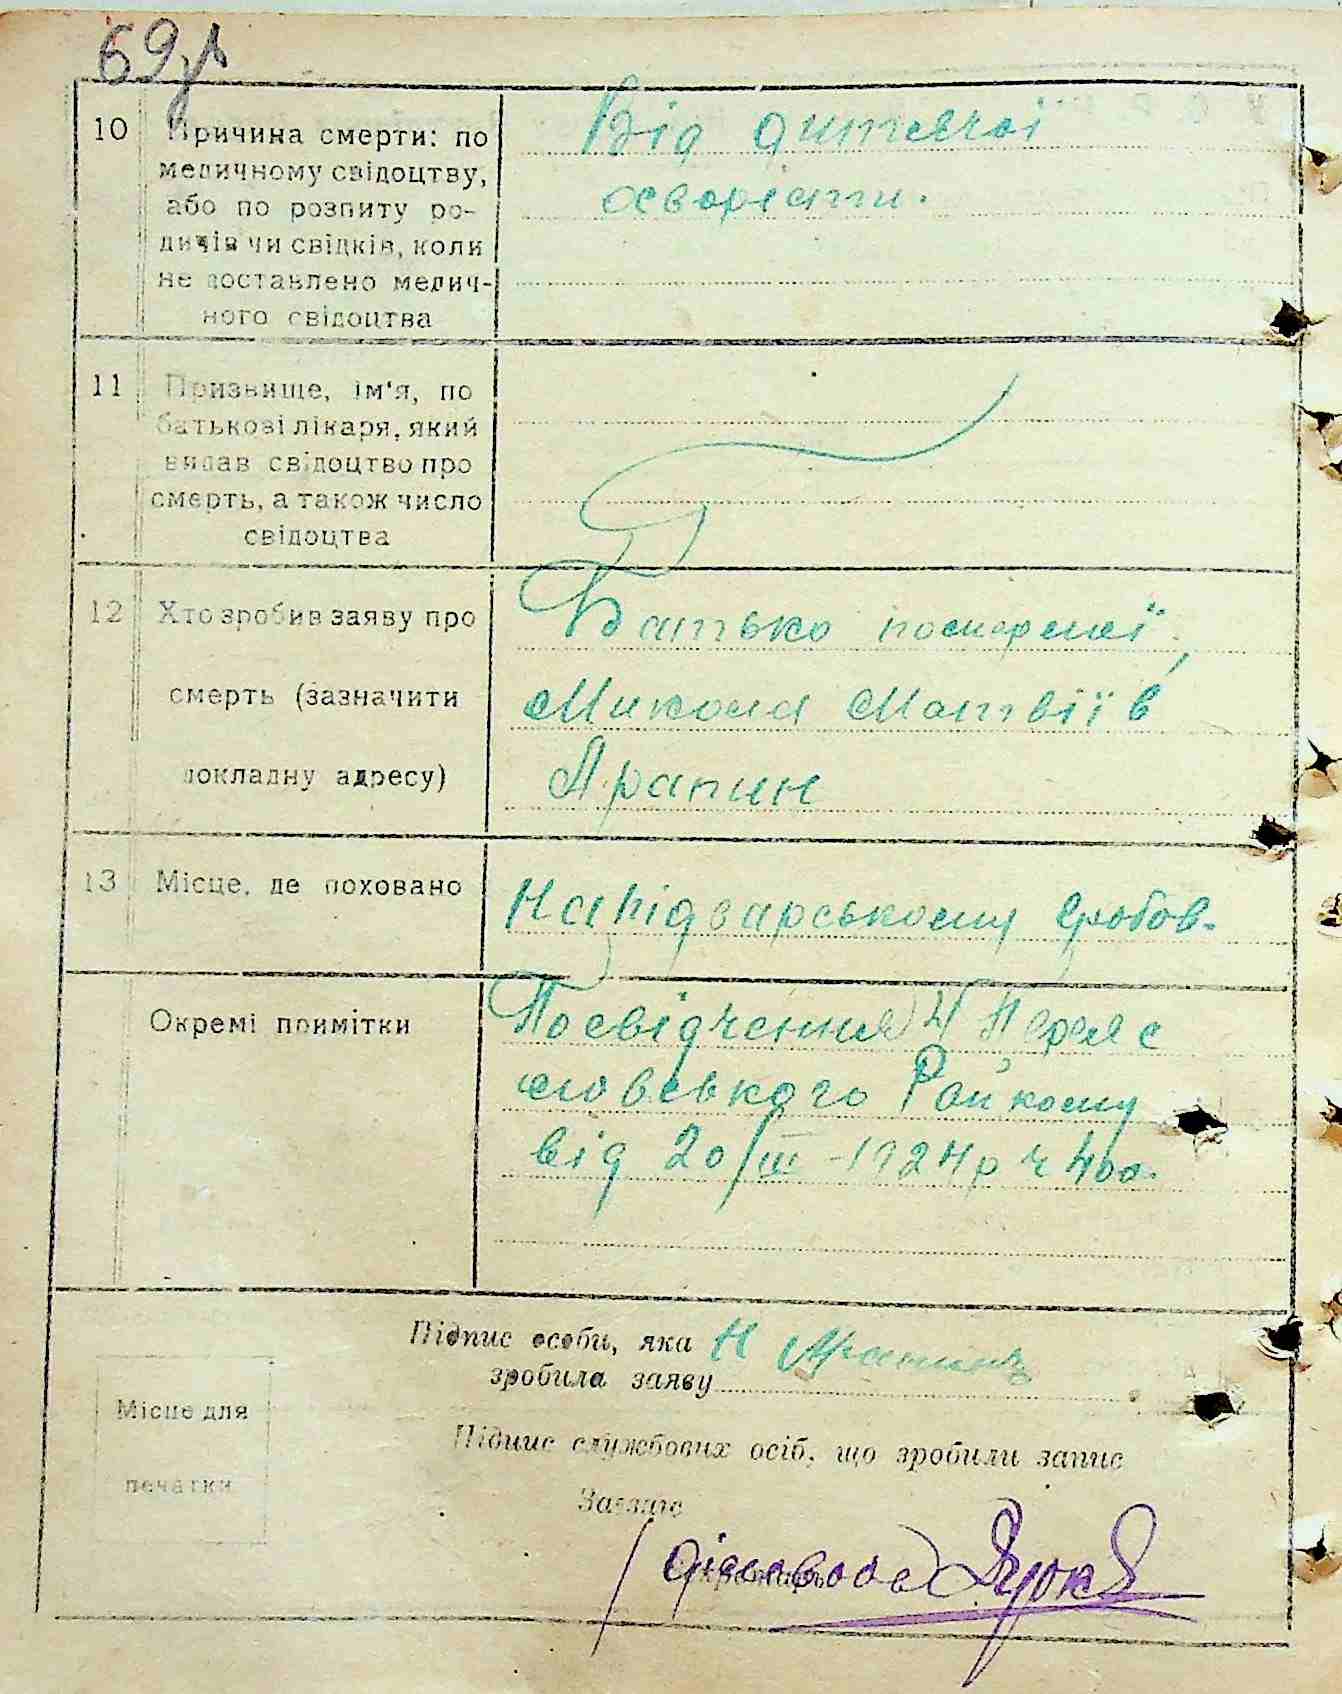 69зв
10 Причина смерти: по
медичному свідоцтву,
або по розпиту ро-
дичів чи свідків, коли
не доставлено медич-
ного свідоцтва
Від дитячої
11 Призвище, ім'я, по
батькові лікаря, який
видав свідоцтво про
смерть, а також число
свідоцтва
12 Хто зробив заяву про
смерть (зазначити
докладну адресу)
Батько померлої,
Микола Матвіїв
Арапин
13 Місце, де поховано
На підварському гробов.
Окремі примітки
Посвідчення Переяс
лавського Райкому
від 20/III-1924р ч 400.
Підпис особи, яка
зробила заяву Н Арапин
Місце для
печатки
Підпис службових осіб, що зробили запис
Завзагс
Діловод